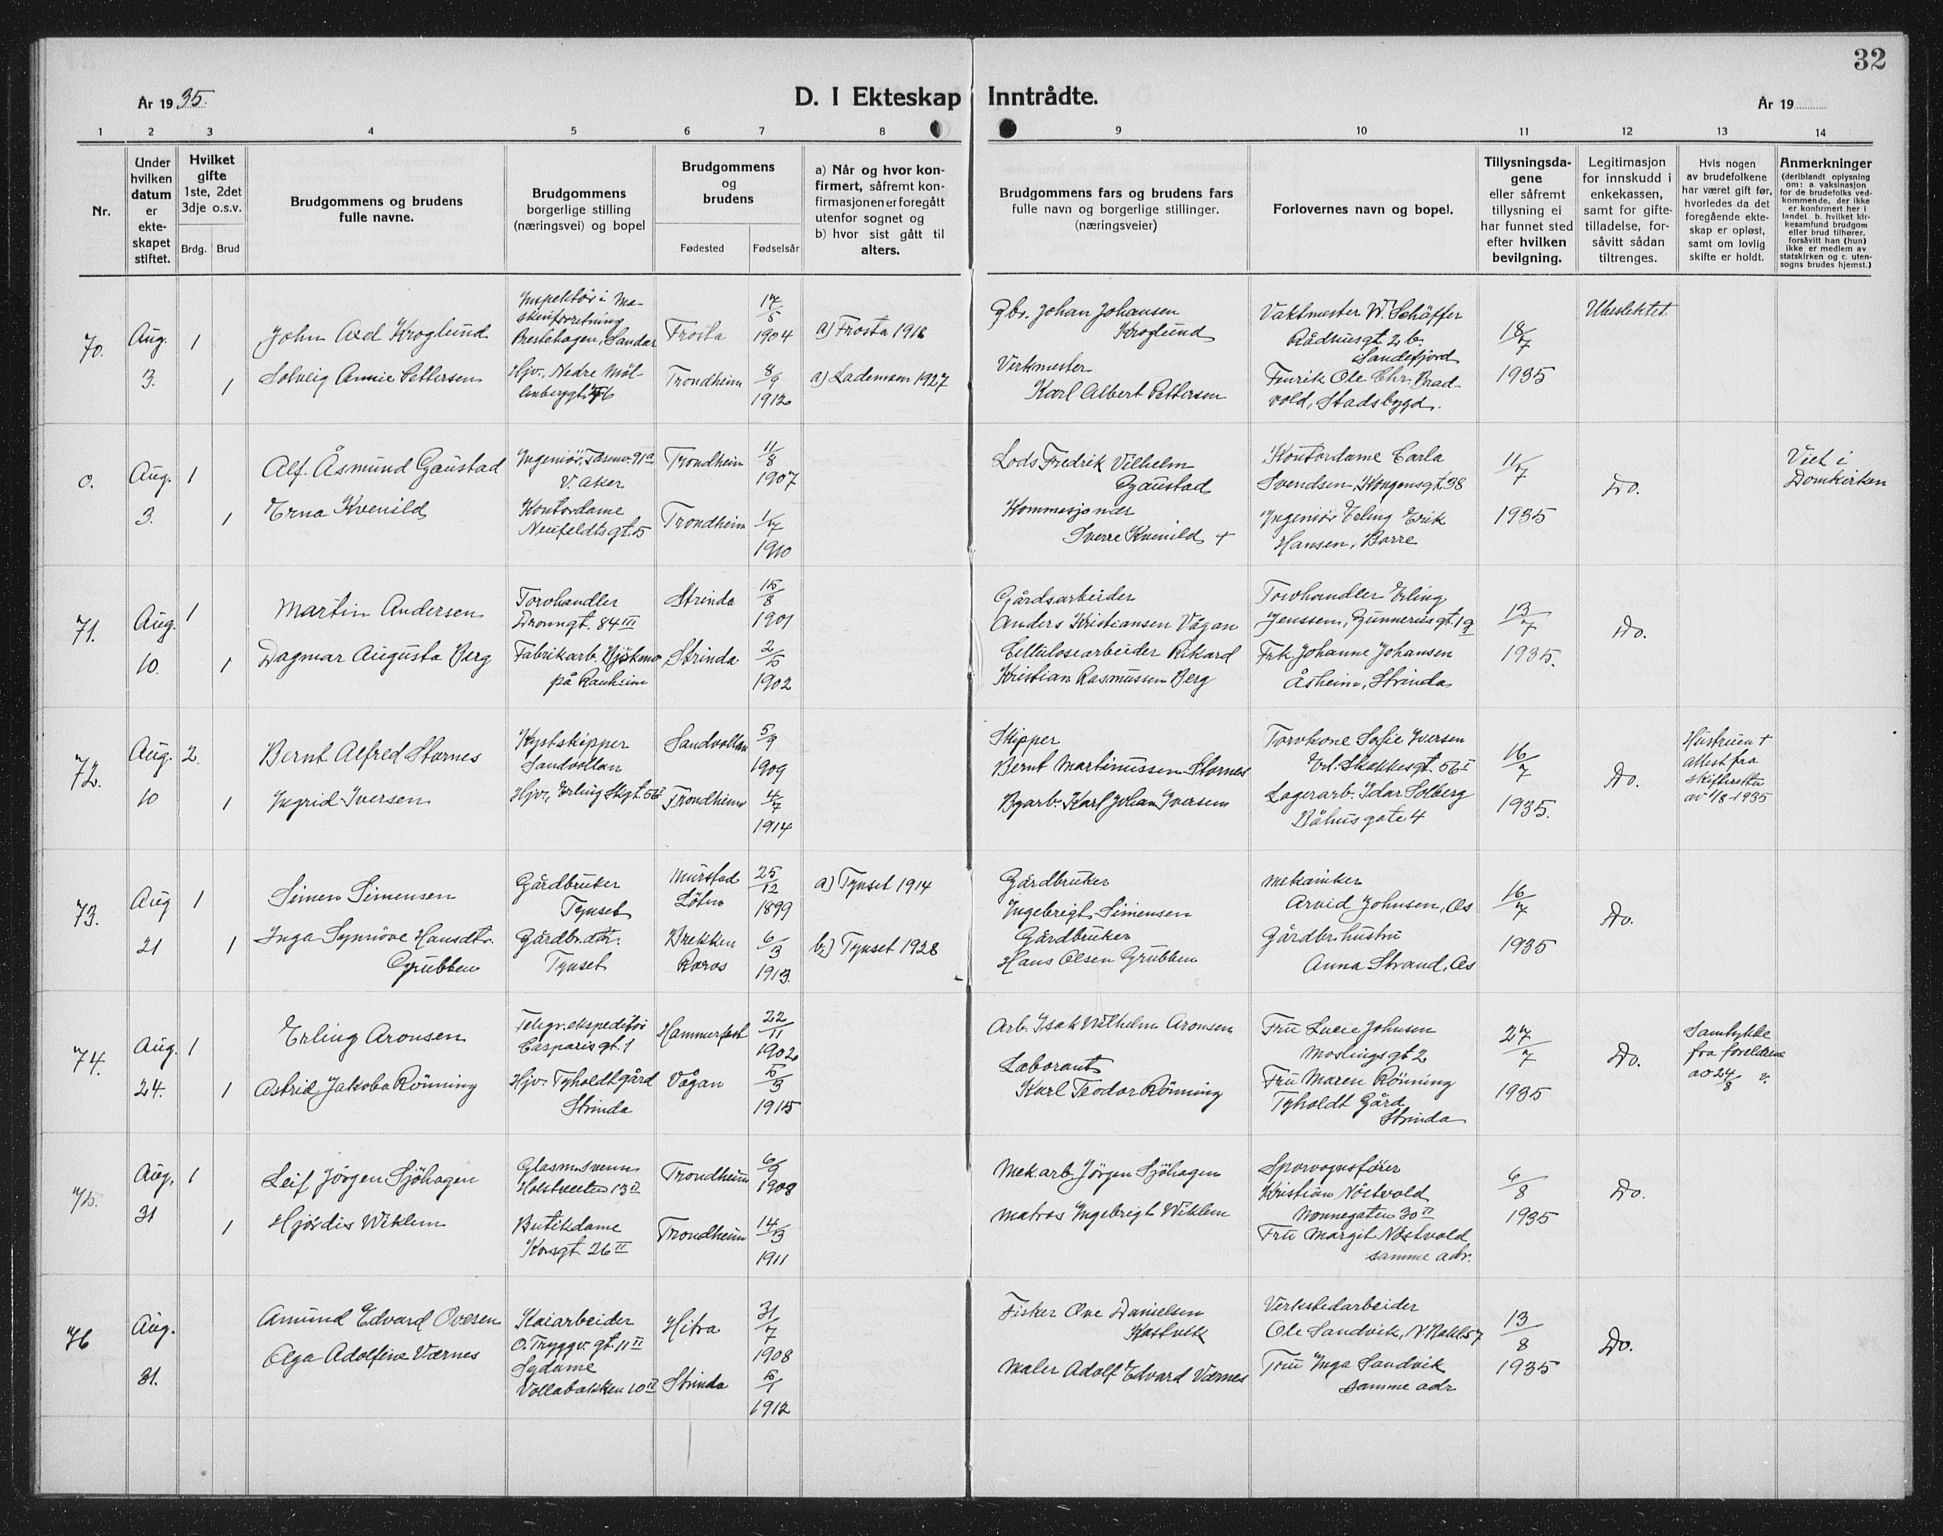 32
År 1935.
D. I Ekteskap Inntrådte.
År 19
1 2 3 4 5 6 7 8 9 10 11 12 13 14
Nr.
Under hvilken datum er ekte-skapet stiftet.
Hvilket gifte 1ste, 2det 3dje o.s.v.
Brdg. Brud
Brudgommens og brudens fulle navne.
Brudgommens borgerlige stilling (næringsvei) og bopel
Brudgommens og brudens
Fødested Fødselsår
a) Når og hvor kon-firmert, såfremt kon-firmasjonen er foregått utenfor sognet og b) hvor sist gått til alters.
Brudgommens fars og brudens fars fulle navn og borgerlige stillinger. (næringsveier)
Forlovernes navn og bopel.
Tillysningsda-gene eller såfremt tillysning ei har funnet sted efter hvilken bevilgning.
Legitimasjon for innskudd i enkekassen, samt for gifte-tilladelse, for-såvitt sådan tiltrenges.
Hvis nogen av brudefolkene har været gift før, hvorledes da det foregående ekte-skap er opløst, samt om lovlig skifte er holdt.
Anmerkninger (deriblandt oplysning om: a. vaksinasjon for de brudefolks ved-kommende, der ikke er konfirmert her i landet. b. hvilket kir-kesamfund brudgom eller brud tilhører, forsåvitt han (hun) ikke er medlem av statskirken og c. uten-sogns brudes hjemst.)
70.
Aug. 3.
1
1
John Axel Kroglund
Solveig Annie Pettersen
Inspektör i Ma-
skinforretning
Prestehagen, Sandar
Hjv. Nedre Möl-
lenberggt. 76
Frosta
Trondheim
17/5 1904
8/9 1912
a) Frosta 1918
a) Lademoen 1927
Gbr. Johan Johansen
Kroglund
Verkmester
Karl Albert Pettersen
Vaktmester W. Schäffer
Rådhusgt 2 b.
Sandefjord
Fenrik Ole Chr. Brad-
vold, Stadsbygd.
18/7
1935
Ubeslektet
0.
Aug. 3.
1
1
Alf Åsmund Gaustad
Erna Kvenild
Ingeniör, Tasenv. 91a
V. Aker
Kontordame
Neufeldtsgt. 5
Trondheim
Trondheim
11/8 1907
1/7 1910
Lods Fredrik Vilhelm
Gaustad
Kommisjonær
Sverre Kvenild +
Kontordame Carla
Svendsen, Kongensgt. 38
Ingeniör Erling Erik
Hansen, Borre
11/7
1935
Do.
Viet i
Domkirken
71.
Aug. 10.
1
1
Martin Andersen
Dagmar Augusta Berg
Torvhandler
Dronngt. 84 III
Fabrikarb. Björkmo
på Ranheim
Strinda
Strinda
15/8 1901
2/5 1902
Gårdsarbeider
Anders Kristiansen Vågan
Cellulosearbeider Rikard
Kristian Rasmusen Berg
Torvhandler Erling
Jenssen, Gunnerusgt. 19
Frk. Johanne Johansen
Åsheim, Strinda
13/7
1935.
Do.
72.
Aug. 10
2.
1
Bernt Alfred Stornes
Ingrid Iversen
Kystskipper
Sandvollan
Hjv., Erling Skgt. 56 I
Sandvollan
Trondheim
5/9 1909
4/7 1914
Skipper
Bernt Martinussen Stornes
Bgarb. Karl Johan Iversen
Torvkone Sofie Iversen
Erl. Skakkesgt. 56 I
Lagerarb. Idar Solberg
Båhusgate 4
16/7
1935.
Do.
Hustruen +
attest fra
skifteretten
av 1/8 1935
73.
Aug 21
1
1
Simen Simensen
Inga Synnöve Hansdtr.
Grubben
Gårdbruker
Tynset
Gårdbr.dtr.
Tynset
Murstad
Löten
Brekken
Röros
25/12 1899
6/3 1913.
a) Tynset 1914
b) Tynset 1928
Gårdbruker
Ingebrigt Simensen
Gårdbruker
Hans Olsen Grubben
Mekaniker
Arvid Johnsen, Os
Gårdbr. hustru
Anna Strand, Os
16/7
1935
Do.
74.
Aug. 24.
1
1
Erling Aronsen
Astrid Jakoba Rönning
Telegr.ekspeditör
Casparisgt. 1
Hjv. Tyholdt gård
Strinda
Hammerfest
Vågan
22/11 1902
5/3 1915
Arb. Isak Wilhelm Aronsen
Laborant
Karl Teodor Rönning
Fru Lucie Johnsen
Moslingsgt 2
Fru Maren Rönning
Tyholdt Gård
Strinda
27/7
1935
Do.
Samtykke
fra foreldrene
av 24/8
75.
Aug. 31
1
1
Leif Jörgen Sjöhagen
Hjördis Wiklem
Glasm.svenn
Holstveiten 13 II
Butikdame
Kongt. 26 II
Trondheim
Trondheim
6/9 1908
14/3 1911
Mek.arb. Jörgen Sjöhagen
Matros Ingebrigt Wiklem
Sporvognsförer
Kristian Nöstvold
Nonnegaten 30 II
Fru Margit Nöstvold
samme adr.
6/8
1935
Do.
76
Aug. 31.
Amund Edvard Ovesen
Olga Adolfine Værnes
Kaiarbeider
O. Tryggv. gt. 11 II
Sydame
Vollabakken 10 II
Hitra
Strinda
31/7 1908
5/1 1912
Fisker Ove Danielsen
Kastvik
Maler Adolf Edvard Værnes
Verkstedarbeider
Ole Sandvik,
Fru Inga Sandvik
samme adr
13/8
1935
Do.